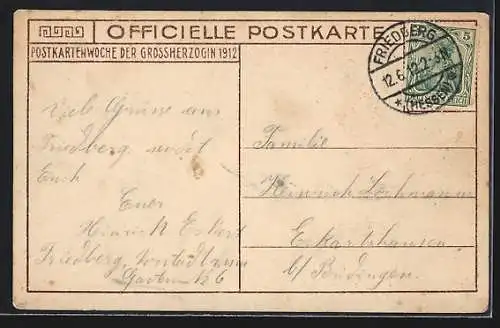 OFFICIELLE POSTKARTE
POSTKARTENWOCHE DER GROSSHERZOGIN 1912
FRIEDBERG
12.6.12.2-3N.
* (HESSEN)
5
Viele Grüsse aus
Friedberg sendet
Euch
Euer
Heinrich
Friedberg
Garten 6
Familie
Heinrich
Eckartshausen
b/ Büdingen.